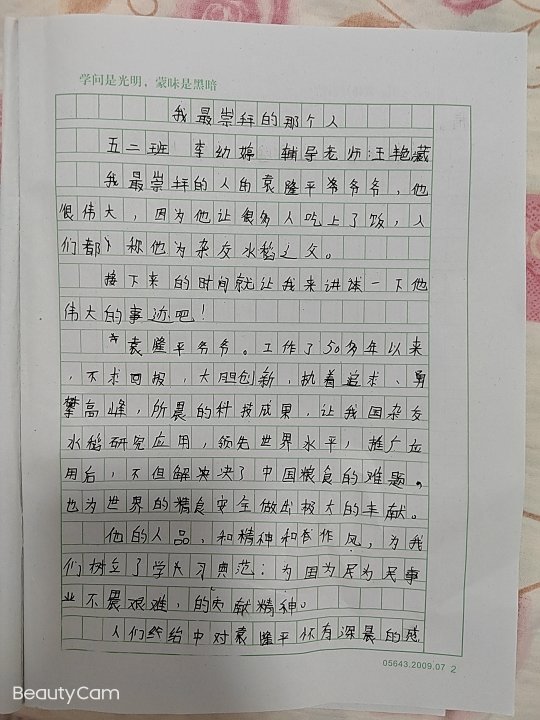 学问是光明，蒙昧是黑暗
我最崇拜的那个人
五二班 李幼婷 辅导老师：王艳藏
我最崇拜的人的袁隆平爷爷爷，他
很伟大，因为他让很多人吃上了饭，人
们都称他为杂交水稻之父。
接下来的时间就让我来讲一下他
伟大的事迹吧！
袁隆平爷爷。工作了50多年以来
，不求回报，大胆创新，执着追求、勇
攀高峰，所晨的科技成果，让我国杂交
水稻研究应用，领先世界水平，推广应
用后，不但解决决了中国粮食的难题，
也为世界的精食安全做出极大的丰献。
他的人品，和精神和作风，为我
们树立了学习典范：为国为民为民事
业不畏艰难，的贡献精神。
人们终给中对袁隆平怀有深晨的感
05643.2009.07 2
BeautyCam